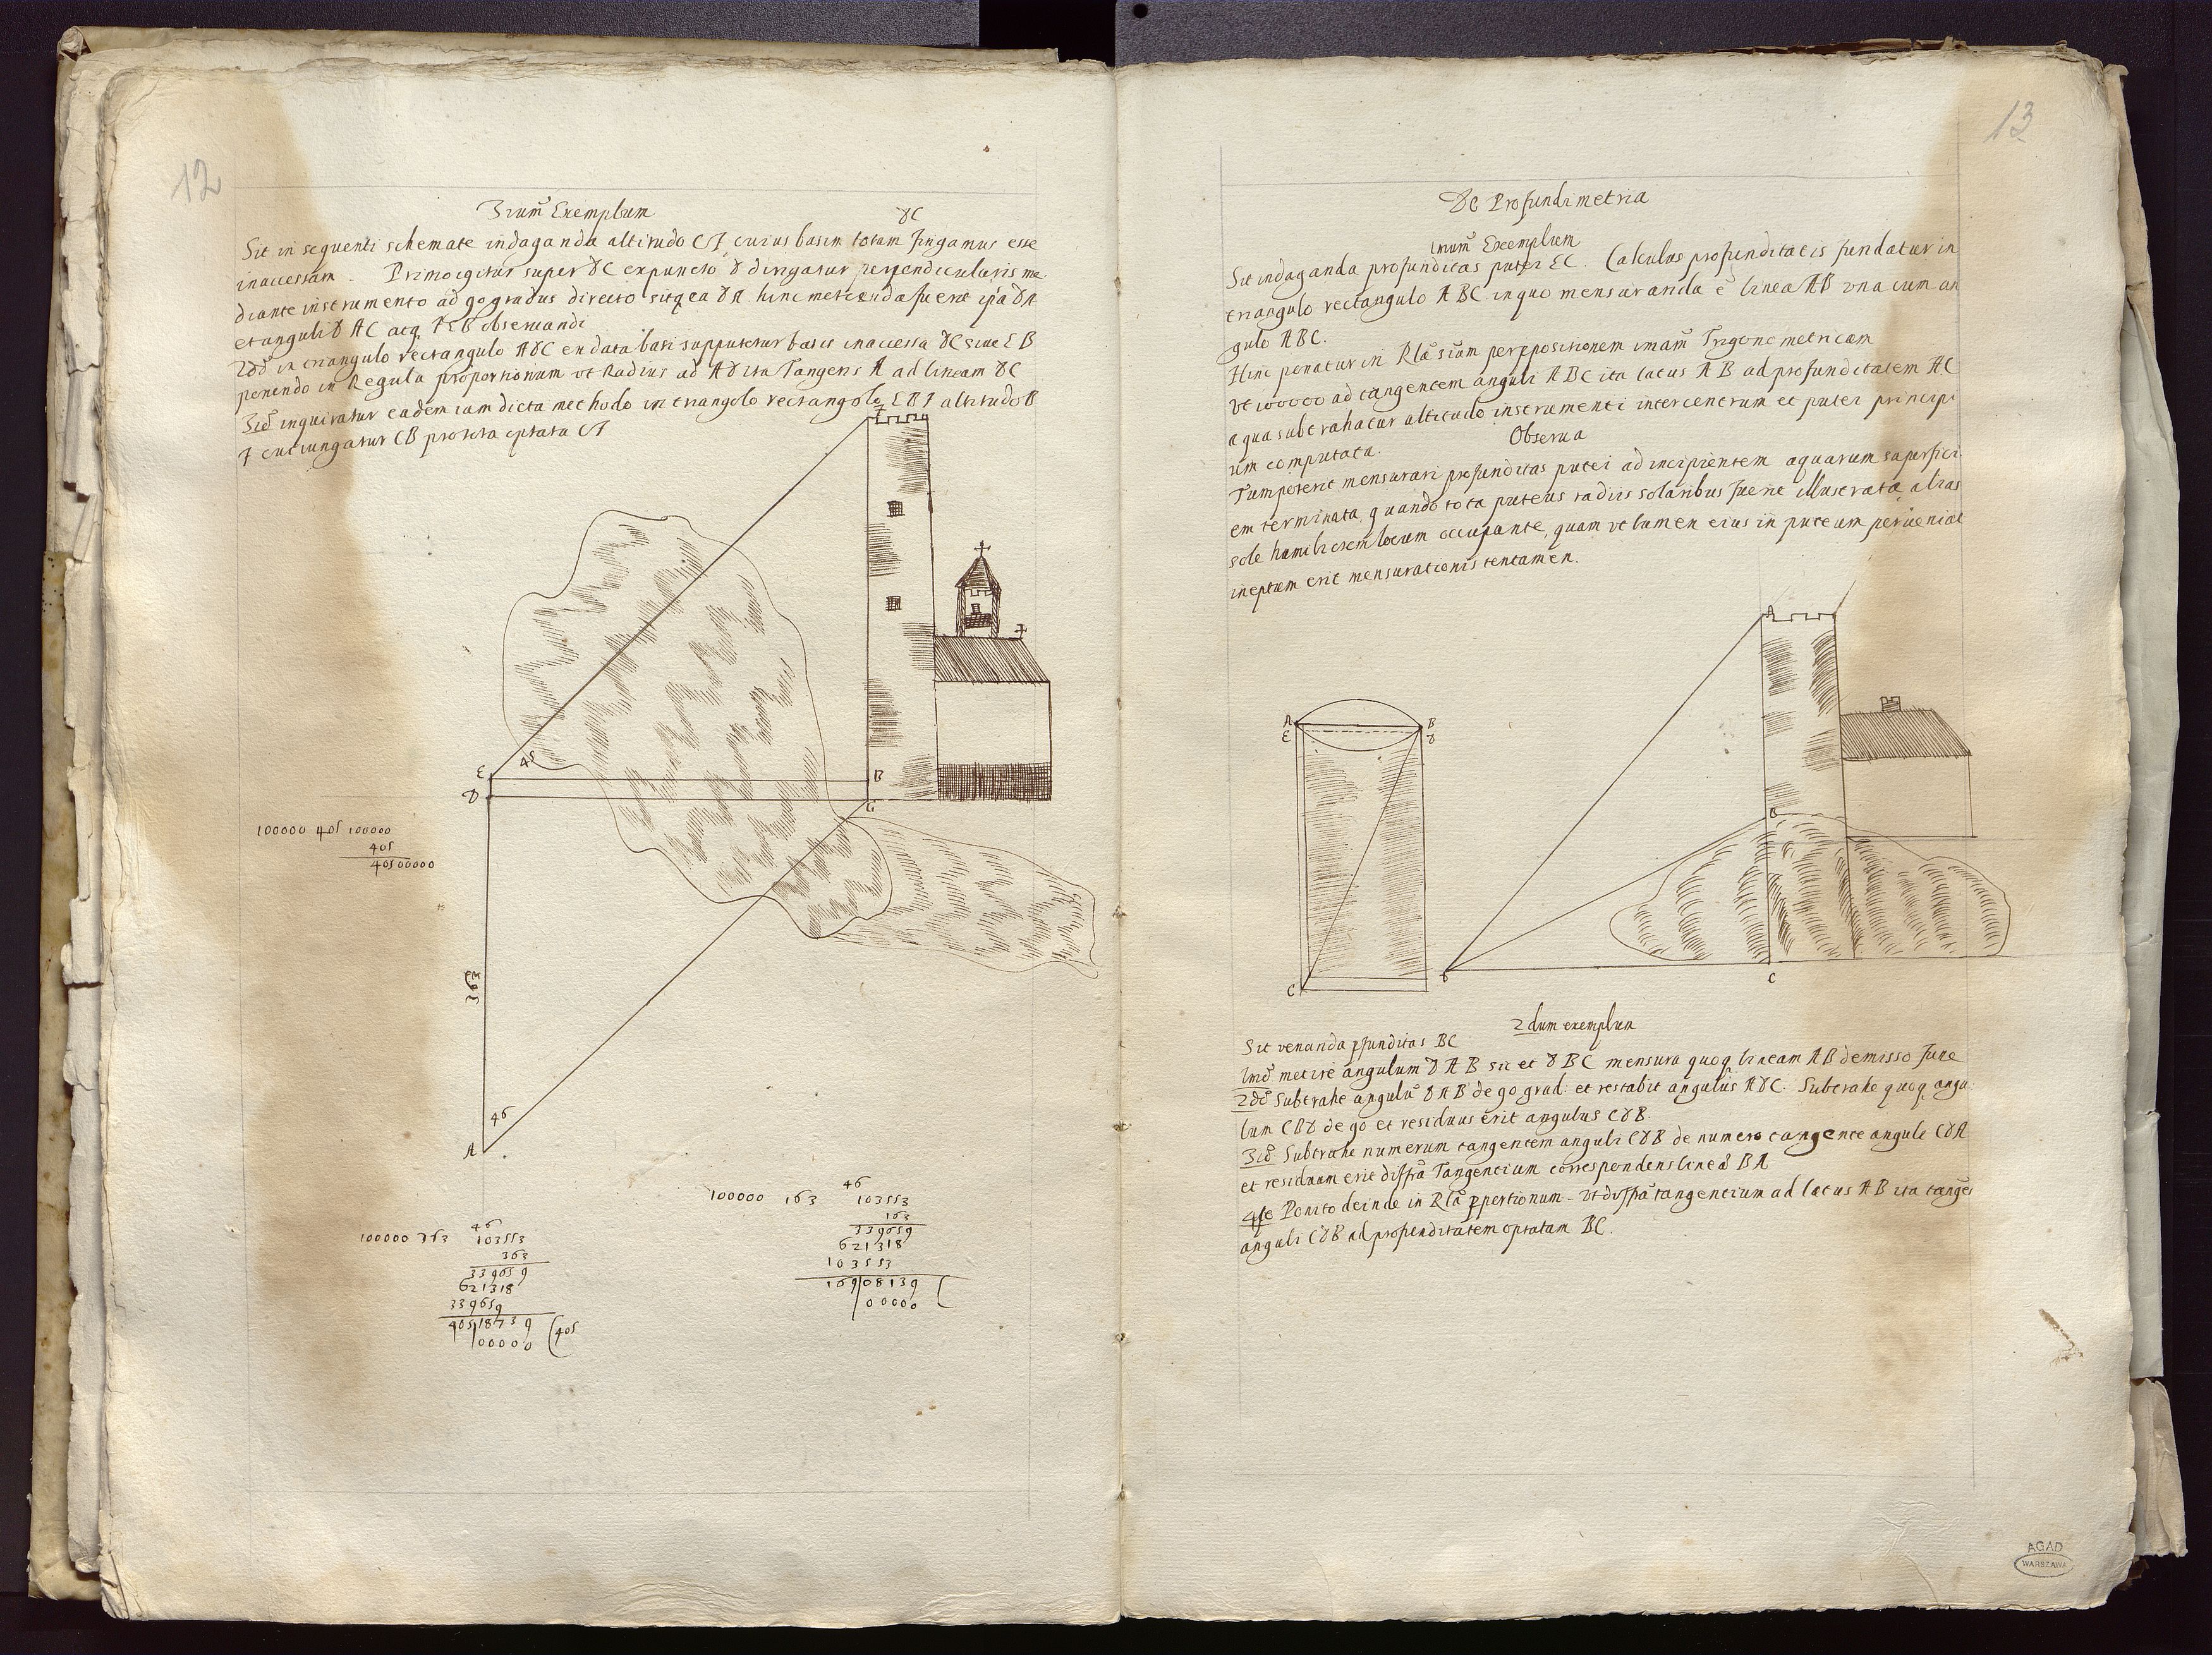 12
3ium Exemplum
DC
Sit in sequenti schemate indaganda altitudo CF cuius basim totam fingamus esse
inaccessam. Primo igitur super DC ex puncto D dirigatur perpendicularis me
diante instrumento ad 90 gradus directo sitq ea DA hinc metienda fuerit ipa DA
et anguli D AC atq FEB obseruandi
2do in triangulo rectangulo ADC ex data basi supputetur basis inaccessa DC siue EB
ponendo in Regula proportionum ut Radius ad AD ita Tangens A ad lineam DC
3io inquiratur eadem iam dicta methodo in triangolo rectangolo EBF altitudo B
F cui iungatur CB optata CF
F
45
E
B
D
C
100000 405 100000
405
40500000
363
46
A
46
100000 163 103553
163
339659
621318
103553
169|08139
|00000
46
100000 363 103553
363
339659
621318
339659
405|18739
|00000 (405
13
De Profundimetria
1mum Exemplum
Sit indaganda profunditas putei EC. Calculus profunditatis fundatur in
triangulo rectangulo ABC in quo mensuranda e linea AB una cum an
gulo ABC.
Hinc ponatur in Rla imam Trigonometricam
Vt 100000 ad tangentem anguli ABC ita latus AB ad profunditatem AC
a qua subtrahatur altitudo instrumenti inter centrum et putei principi
um computata.
Obserua
Tum poterit mensurari profunditas putei ad incipientem aquarum superfici
em terminata, quando tota puteus radiis solaribus fuerit illustrata, alias
sole humiliorem locum occupante, quam vt lumen eius in puteum perueniat
ineptum erit mensurationis tentamen.
A
A
B
E
D
B
D
C
C
2dum exemplum
Sit venanda pfunditas BC
1mo metire angulum DAB sic et DBC mensura quoq lineam AB demisso fune
2do Subtrahe angulu DAB de 90 grad: et restabit angulus ADC. Subtrahe quoq angu
lum CBD de 90 et residuus erit angulus CDB.
3io Subtrahe numerum tangentem anguli CDB de numero tangente anguli CDA
et residuum erit diffra Tangentium correspondens linea BA
4to Ponito deinde in Rla pportionum - Vt diffra tangentium ad latus AB ita tanges
anguli CDB ad profunditatem optatam BC.
AGAD
WARSZAWA